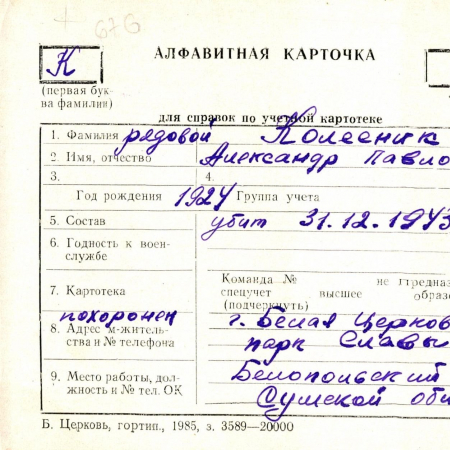 676
АЛФАВИТНАЯ КАРТОЧКА
К
(первая бук-
ва фамилии)
для справок по учетной картотеке
1. Фамилия рядовой Колесник
2. Имя, отчество Александр Павло
3. 4.
Год рождения 1924 Группа учета
5. Состав убит 31.12.1943
6. Годность к воен-
службе
Команда № не предназ
7. Картотека спецучет высшее образо
(подчеркнуть)
похоронен г. Белая Церковь
8. Адрес м-житель-
ства и № телефона парк Славы
Белопольский
9. Место работы, дол-
жность и № тел. ОК Сумской обл
Б. Церковь, гортип., 1985, з. 3589—20000